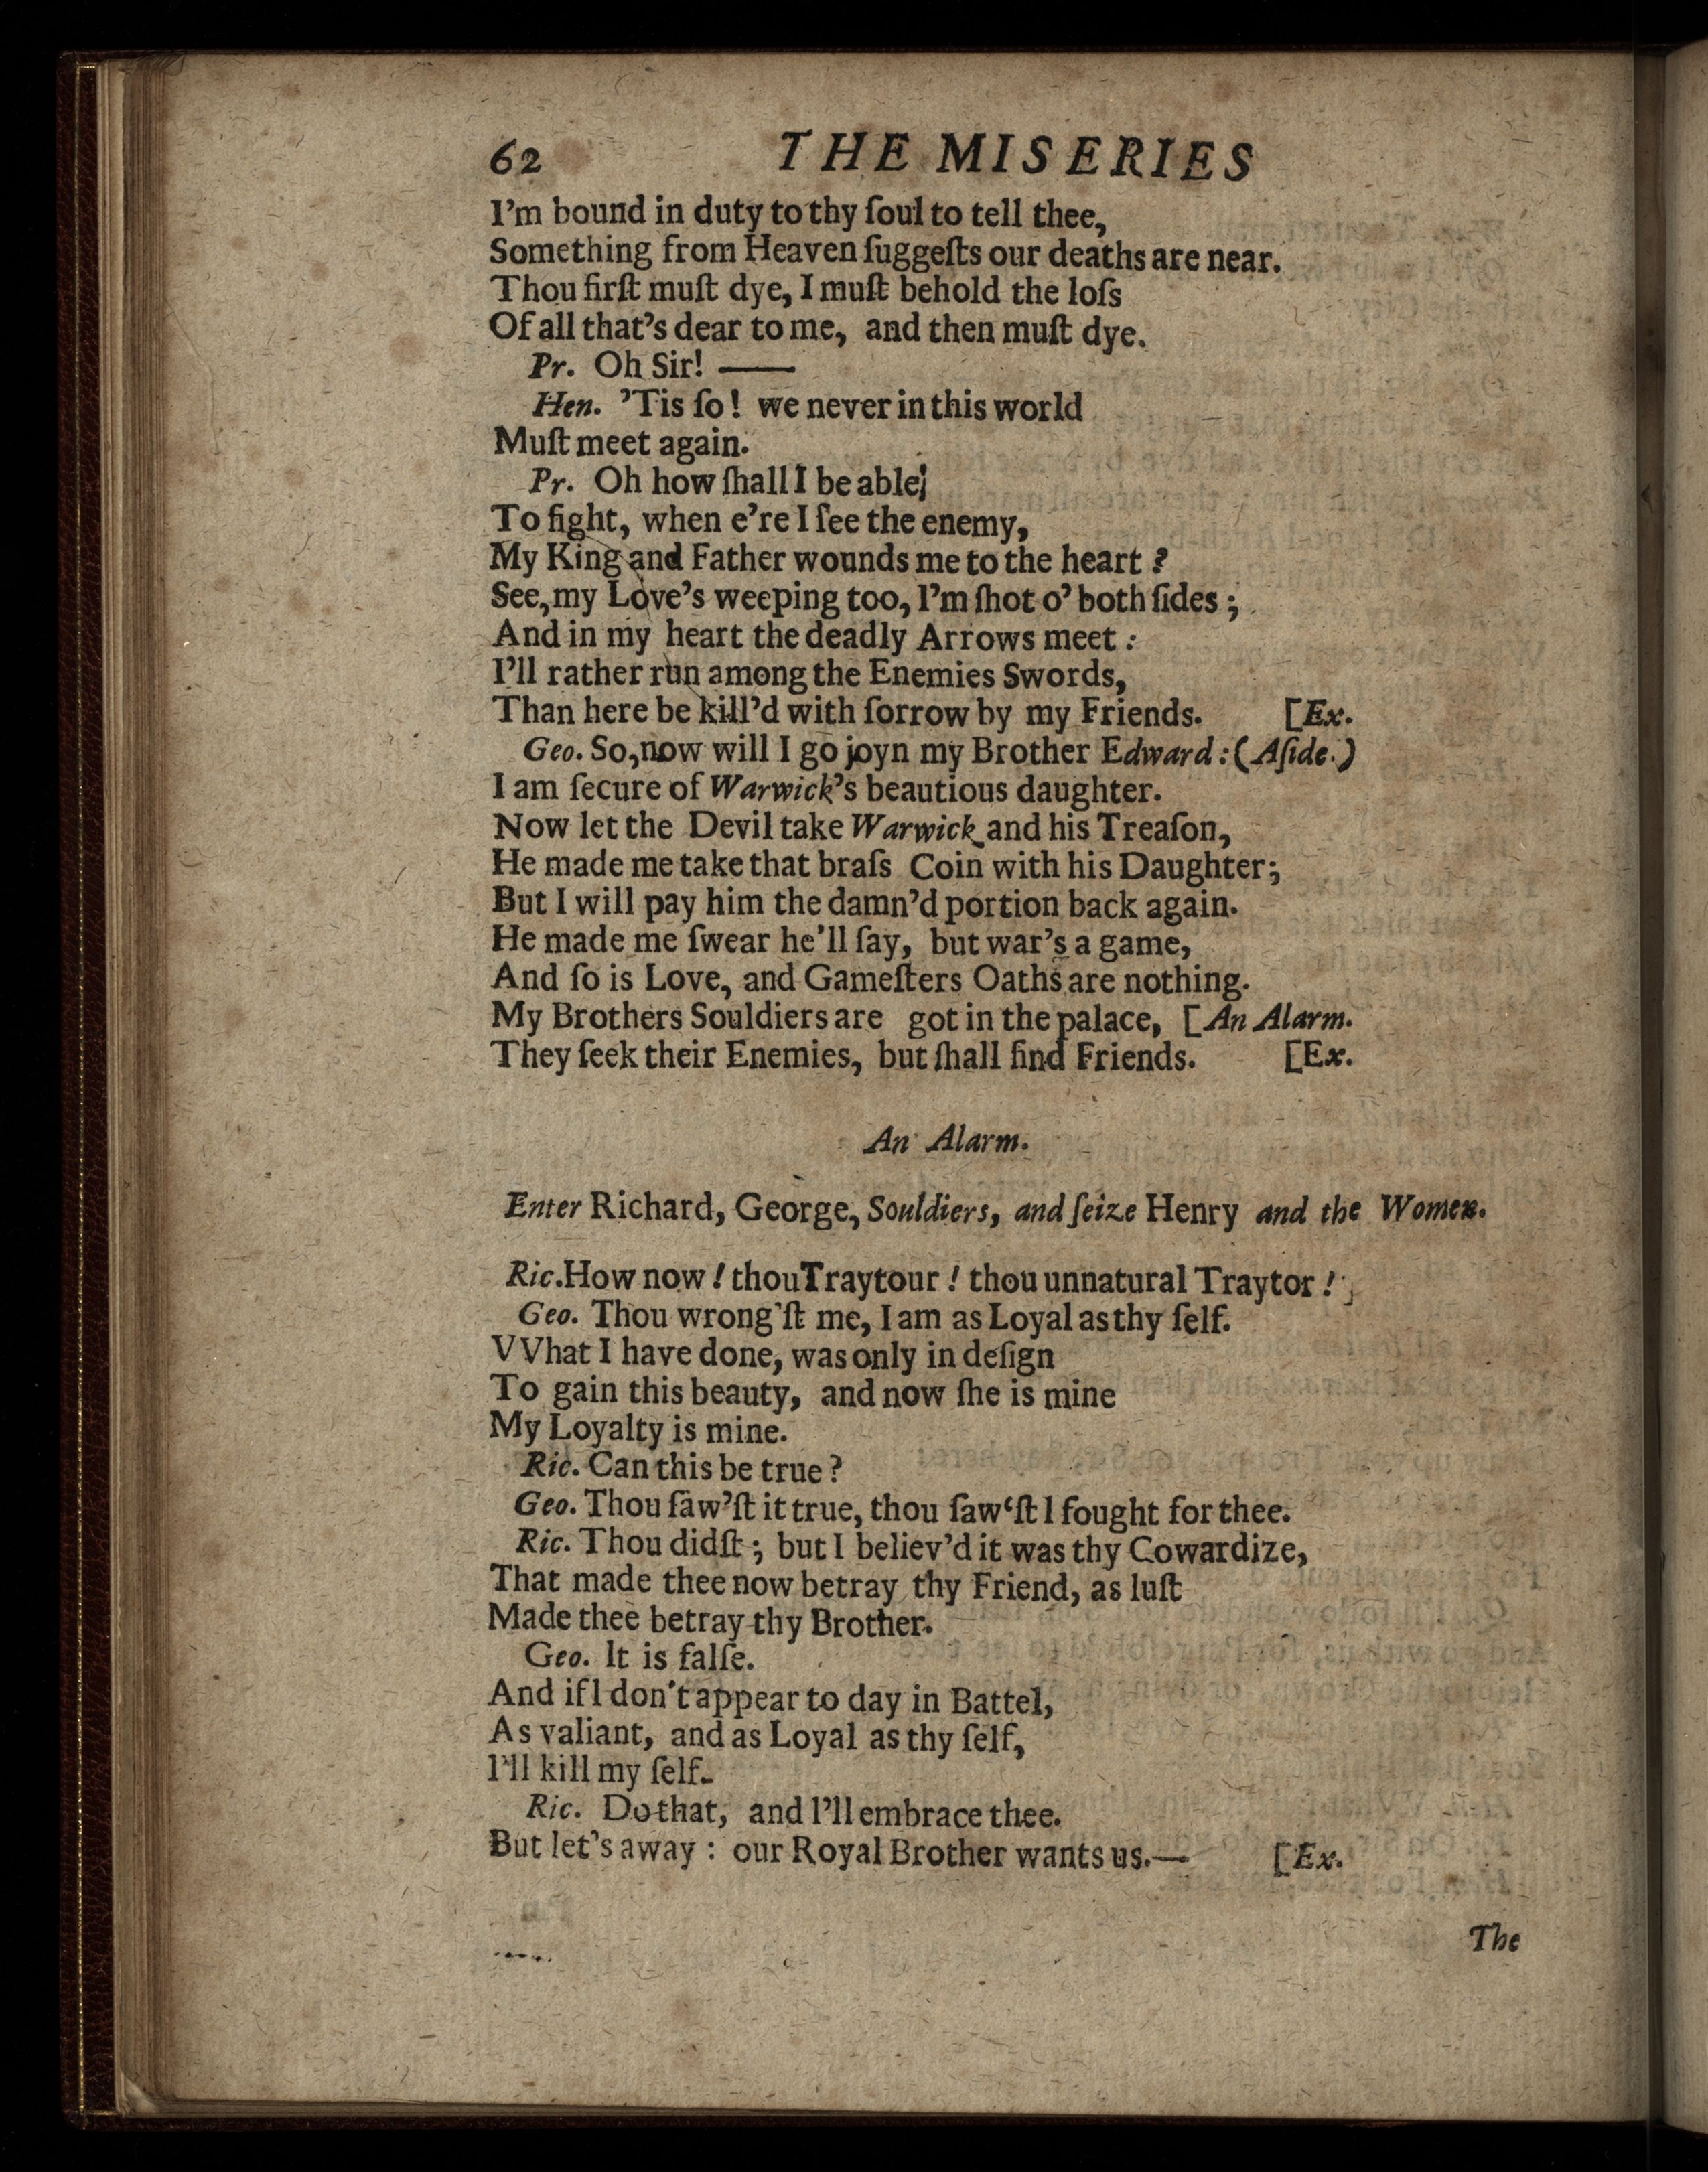 62 THE MISERIES
I'm bound in duty to thy ſoul to tell thee,
Something from Heaven ſuggeſts our deaths are near.
Thou firſt muſt dye, I muſt behold the loſs
Of all that's dear to me, and then muſt dye.
Pr. Oh Sir! ——
Hen. 'Tis ſo! we never in this world
Muſt meet again.
Pr. Oh how ſhall I be able!
To fight, when e're I ſee the enemy,
My King and Father wounds me to the heart?
See, my Love's weeping too, I'm ſhot o' both ſides;
And in my heart the deadly Arrows meet:
I'll rather run among the Enemies Swords,
Than here be kill'd with ſorrow by my Friends. [Ex.
Geo. So, now will I go joyn my Brother Edward: (Aſide.)
I am ſecure of Warwick's beautious daughter.
Now let the Devil take Warwick and his Treaſon,
He made me take that braſs Coin with his Daughter;
But I will pay him the damn'd portion back again.
He made me ſwear he'll ſay, but war's a game,
And ſo is Love, and Gameſters Oaths are nothing.
My Brothers Souldiers are got in the palace, [An Alarm.
They ſeek their Enemies, but ſhall find Friends. [Ex.
An Alarm.
Enter Richard, George, Souldiers, and ſeize Henry and the Women.
Ric. How now! thou Traytour! thou unnatural Traytor!
Geo. Thou wrong'ſt me, I am as Loyal as thy ſelf.
VVhat I have done, was only in deſign
To gain this beauty, and now ſhe is mine
My Loyalty is mine.
Ric. Can this be true?
Geo. Thou ſaw'ſt it true, thou ſaw‘ſt I fought for thee.
Ric. Thou didſt; but I believ'd it was thy Cowardize,
That made thee now betray thy Friend, as luſt
Made thee betray thy Brother.
Geo. It is falſe.
And if I don't appear to day in Battel,
As valiant, and as Loyal as thy ſelf,
I'll kill my ſelf.
Ric. Do that, and I'll embrace thee.
But let's away: our Royal Brother wants us.— [Ex.
The